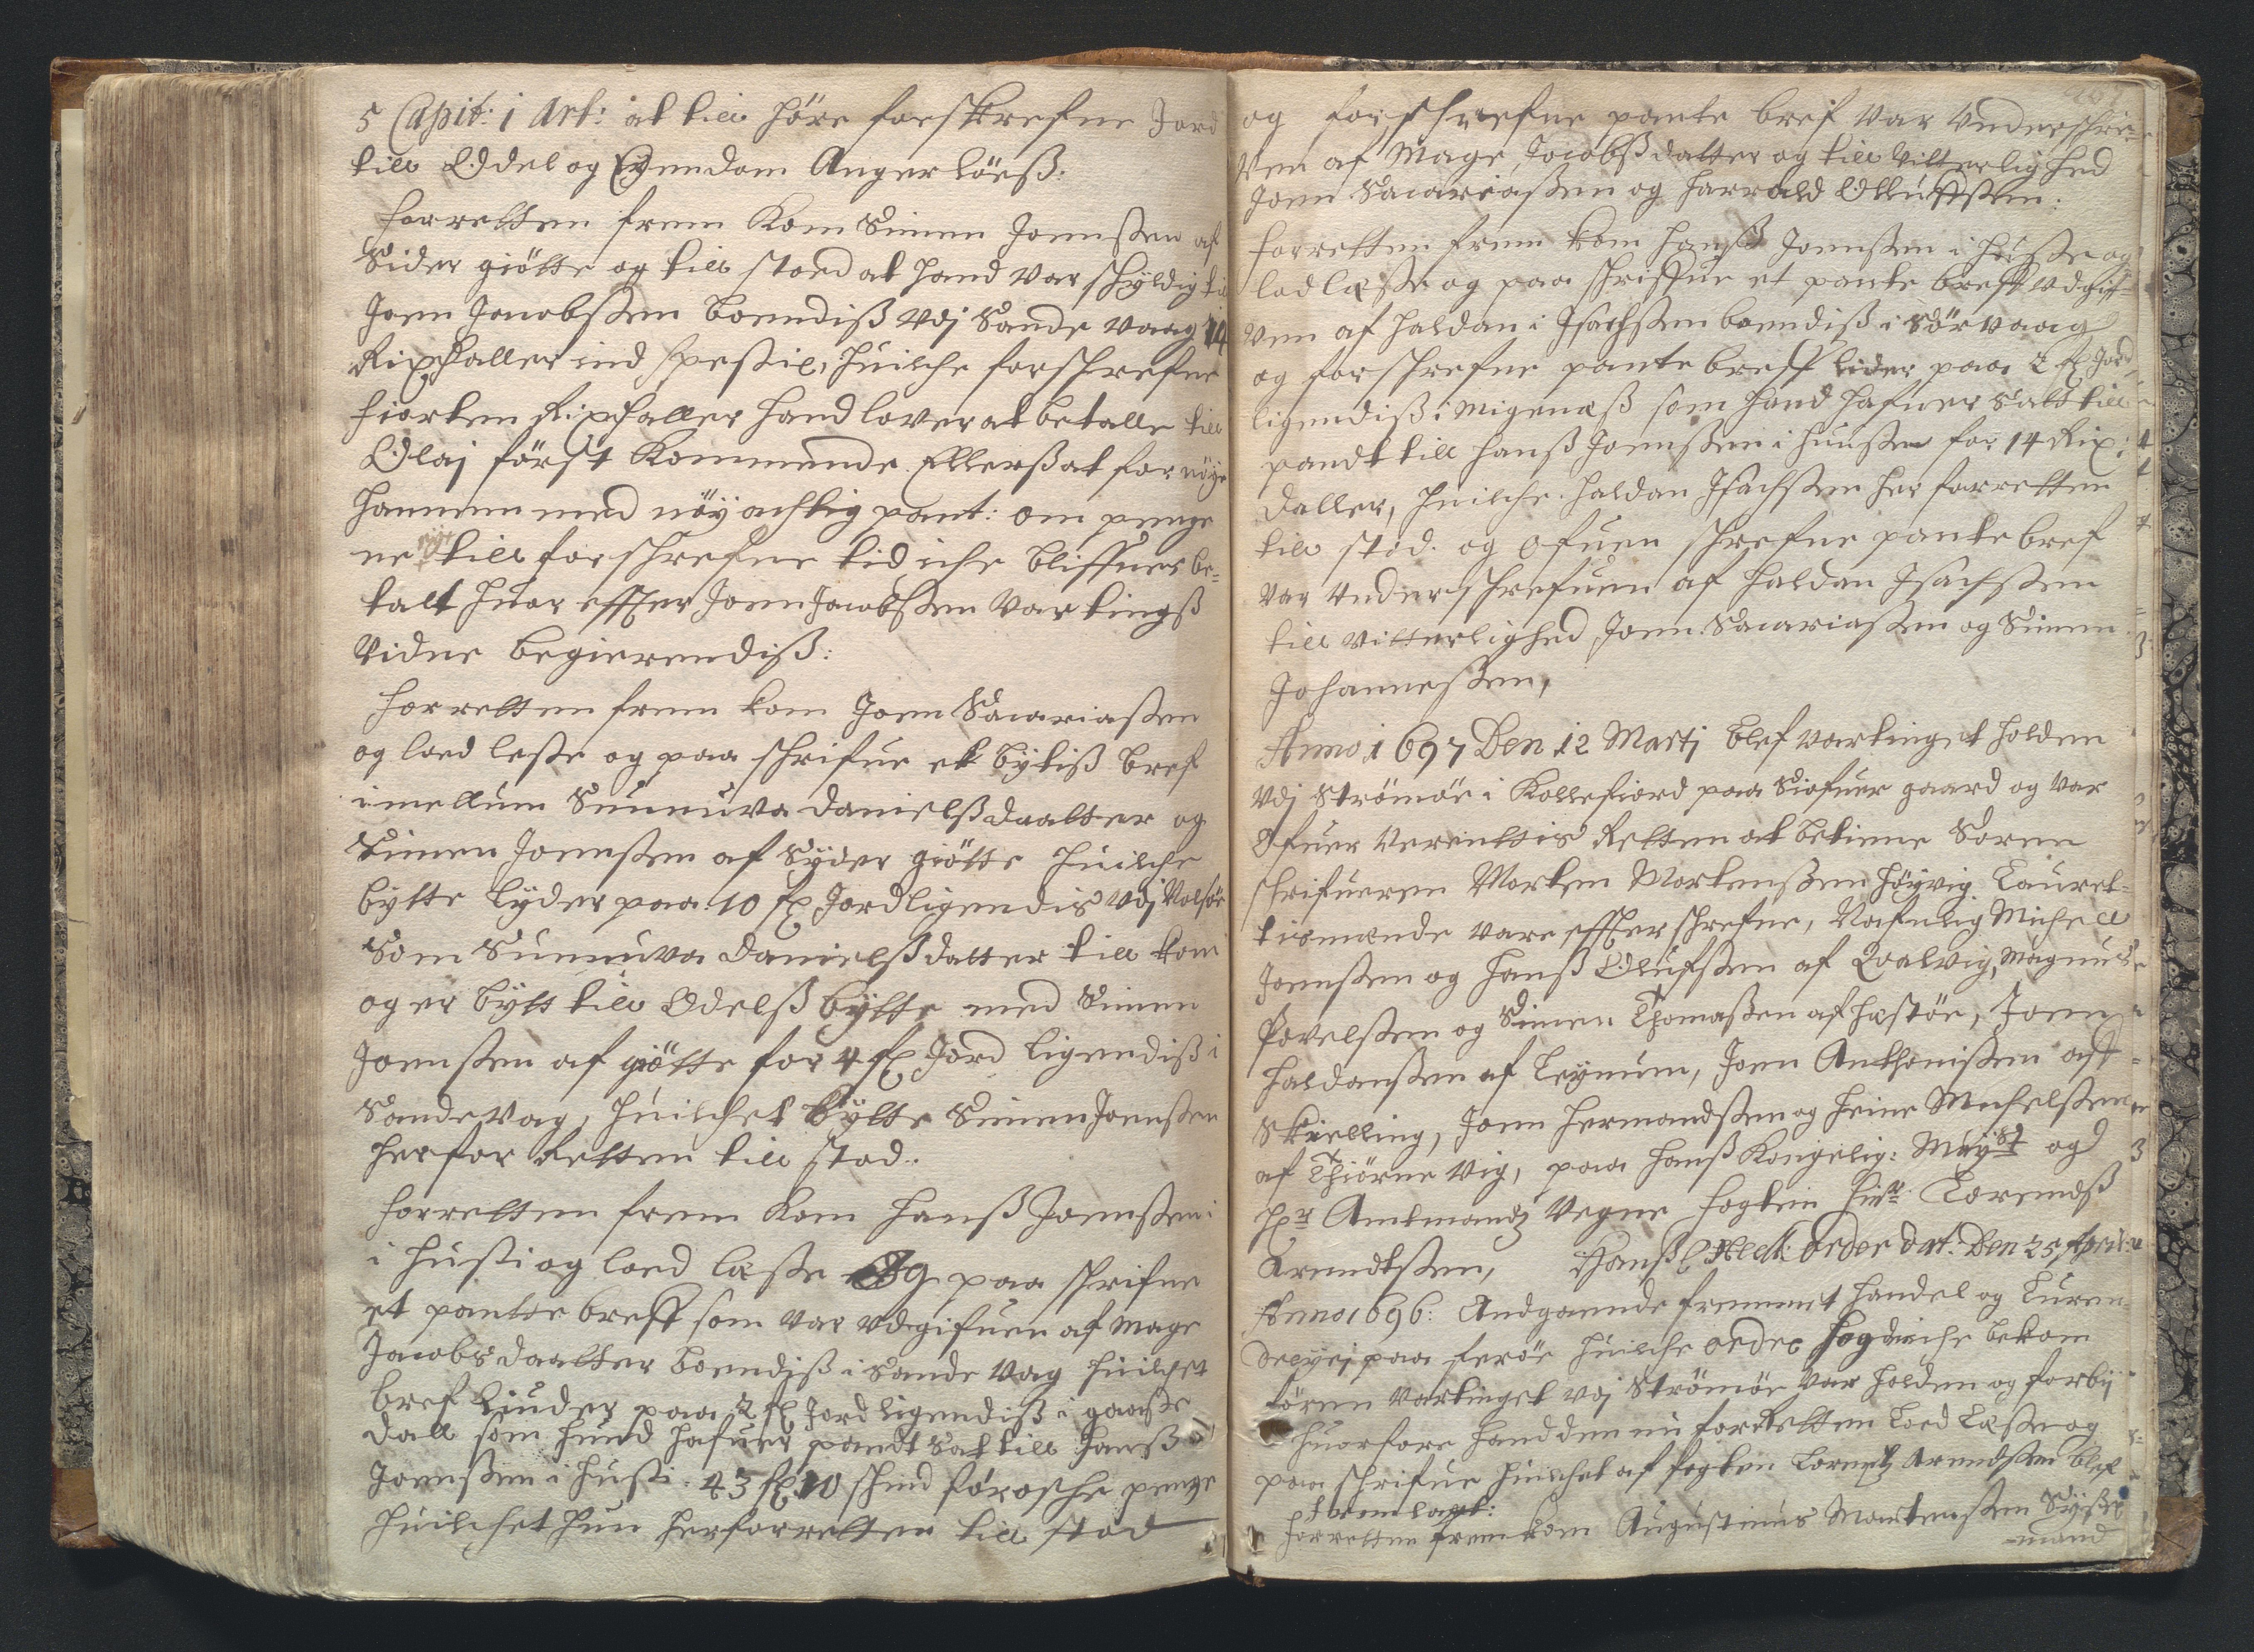 5 Capit: 1 Art: at till höre forskrefne Jord
till Oddel og Eyendom Angerlöeß:
forretten frem Kom Simen Joenßen af
Sider giötte og till stoed at hand var schyldig till
Joen Jacobßen boendiß Vdj Sande vaag 14
Rixdaller ind spestie, huilche forschrefne
fiorten Rixdaller hand lover at betalle till
Olaj först Kommende. Ellerß at for nöye
hannem med nöyachtig pant: om penge
ne till forschrefne tid iche bliffuer be=
talt huor effter Joen Jacobßen Var tingß
Vidne begierendiß:
forretten frem kom Joen Sacariaßen
og loed leße og paa schrifue et bytiß bref
imellum Sunnuva Danielßdaatter og
Simen Joenßen af Syder giötte huilche
bytte lyder paa 10 fx Jord ligendis Vdj Valsöe
Som Sunnuva Danielßdatter till kom
og er bytt till Odelß bytte med Simen
Joenßen af giötte for 4 fx Jord ligendiß i
Sandevag, huilchet bytte Simen Joenßen
her for Retten till stod.
forretten frem kom Hanß Joenßen i
i Husti og loed læße Og paa schrifue
et pantte breff som var vdgifuen af Mage
Jacobsdaatter boendiß i Sande vag huilchet
bref liuder paa 2 fx Jord ligendiß i gaaße
dall som hund hafuer pandt sat till Hanß
Joenßen i Husti. 43 fx 10 schind förosche penge
huilchet hun her forretten till stod
og forschrefne pante bref var Vnderschre=
ven af Mage Jacobßdatter og till vitterlighed
Joen Sacariaßen og Harrald Olluffßen:
forretten frem kom Hanß Joenßen i Huße og
lod læße og paa schriffue et pante breff vdgif=
ven af Haldan i Isachßen boendiß i Sörvaag
og forschrefne pante breff lider paa 2 fx Jord
ligendiß i Migenæß som hand hafuer satt till
pandt till Hanß Joenßen i Hunßen for 14 Rix:
daller, huilche Haldan Isachßen her forretten
till stod. og ofuen schrefne pante bref
var Vnderschrefuen af Haldan Isachßen
till vitterlighed Joen Sacariaßen og Simen
Johanneßen,
Anno 1697 Den 12 Martj blef vartinget holden
Vdj Strömöe i Kollefiord paa Siofuer gaard og var
Ofuer værenttis Retten at betiene Soren
schrifueren Morten Mortenßen Höyvig Lauret=
tismænde vare effter schrefne, Nafnlig Michell
Joenßen og Hanß Olufßen af Qvalvig, Magnus
Povelßen og Simen Thomaßen af Hæstöe, Joen
Haldanßen af Leynum, Joen Anthonißen aff
Skielling, Joen Hermandßen og Heine Michelßen
af Thiörne Vig, paa Hanß Kongelig: Mayst og
Hr Amtmandz Vegne fogten Sigr Lorendß
Arendtßen, Hanß Heck order dat: Den 25 April
Anno 1696: Andgaaende fremmet Handel og Turen
Delyej paa feröe huilche order hog iche bekom
fören vartinget vdj Strömöe var holden og forby
huorfore hand den nu for Retten loed læße og
paa schrifue huilchet af fogten Lorentz Arendßen blef
frem lagt:
forretten frem kom Augustinus Mortenßen Syßel
=mand